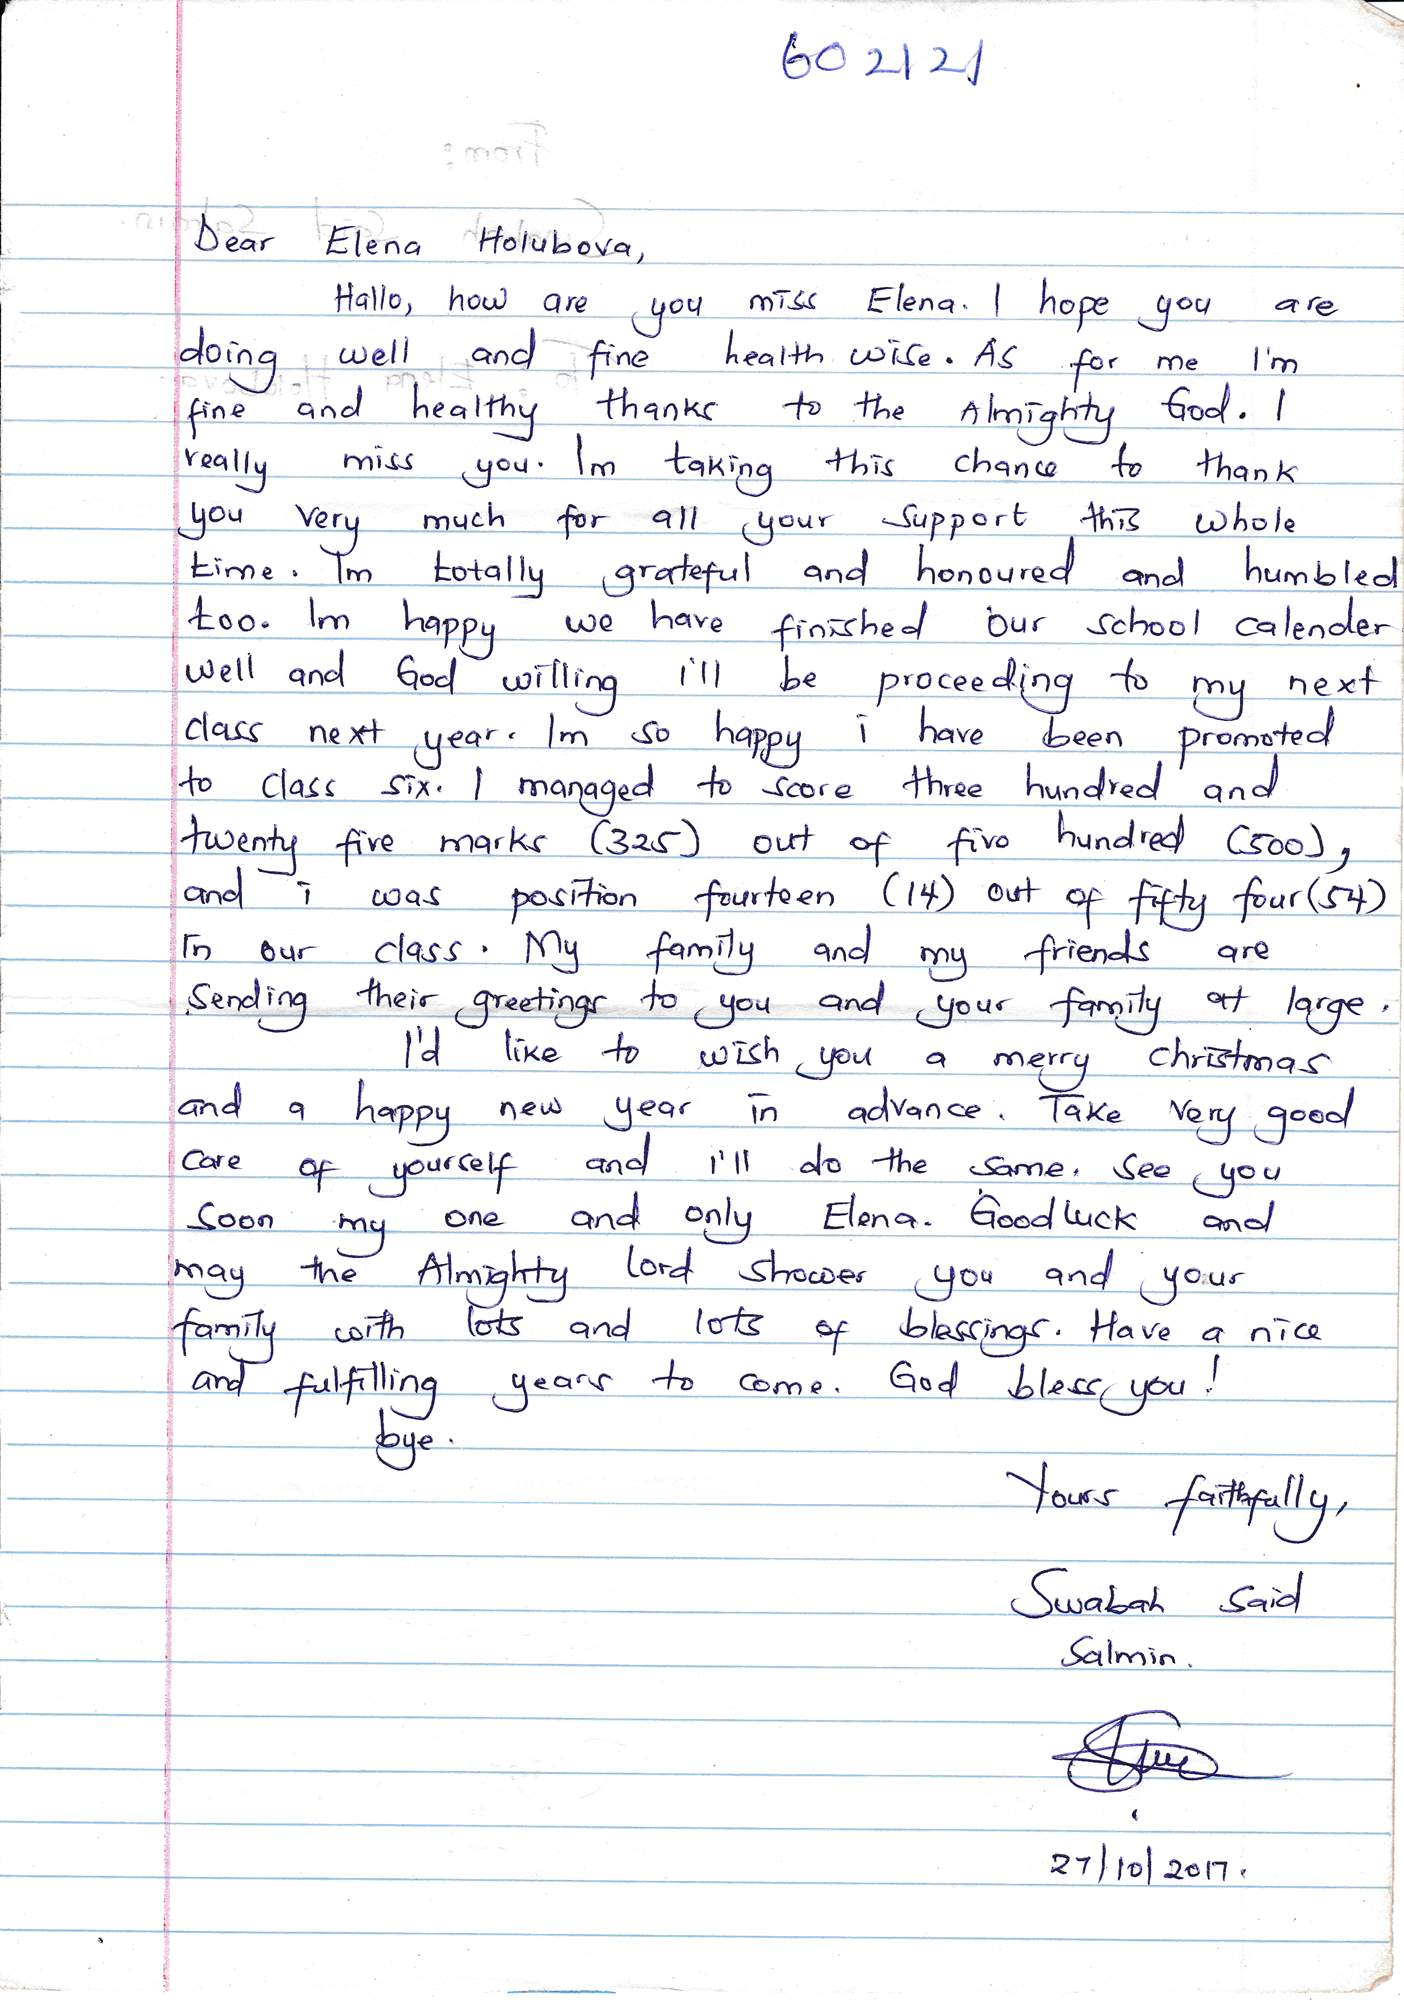 602121
Dear Elena Holubova,
Hallo, how are you miss Elena. I hope you are
doing well and fine health wise. As for me I'm
fine and healthy thanks to the Almighty God. I
really miss you. Im taking this chance to thank
you very much for all your support this whole
time. Im totally grateful and honoured and humbled
too. Im happy we have finished our school calender
well and God willing i'll be proceeding to my next
class next year. Im so happy i have been promoted
to class six. I managed to score three hundred and
twenty five marks (325) out of five hundred (500),
and i was position fourteen (14) out of fifty four (54)
in our class. My family and my friends are
sending their greetings to you and your family at large.
I'd like to wish you a merry christmas
and a happy new year in advance. Take very good
care of yourself and i'll do the same. See you
soon my one and only Elena. Goodluck and
may the Almighty lord shower you and your
family with lots and lots of blessings. Have a nice
and fulfilling years to come. God bless you!
bye.
Yours faithfully,
Swabah Said
Salmin.
27/10/2017.